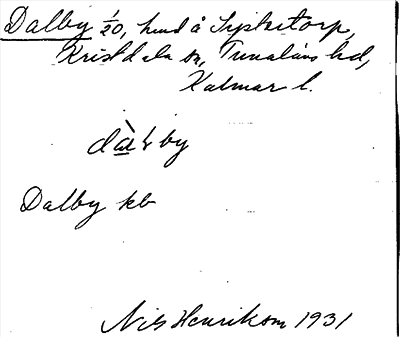 Dalby 1/20, hmd å Sjökistorp,
Kristdala sn, Tunaläns hd,
Kalmar l.
dàlby
Dalby kb
Nils Henrikson 1931